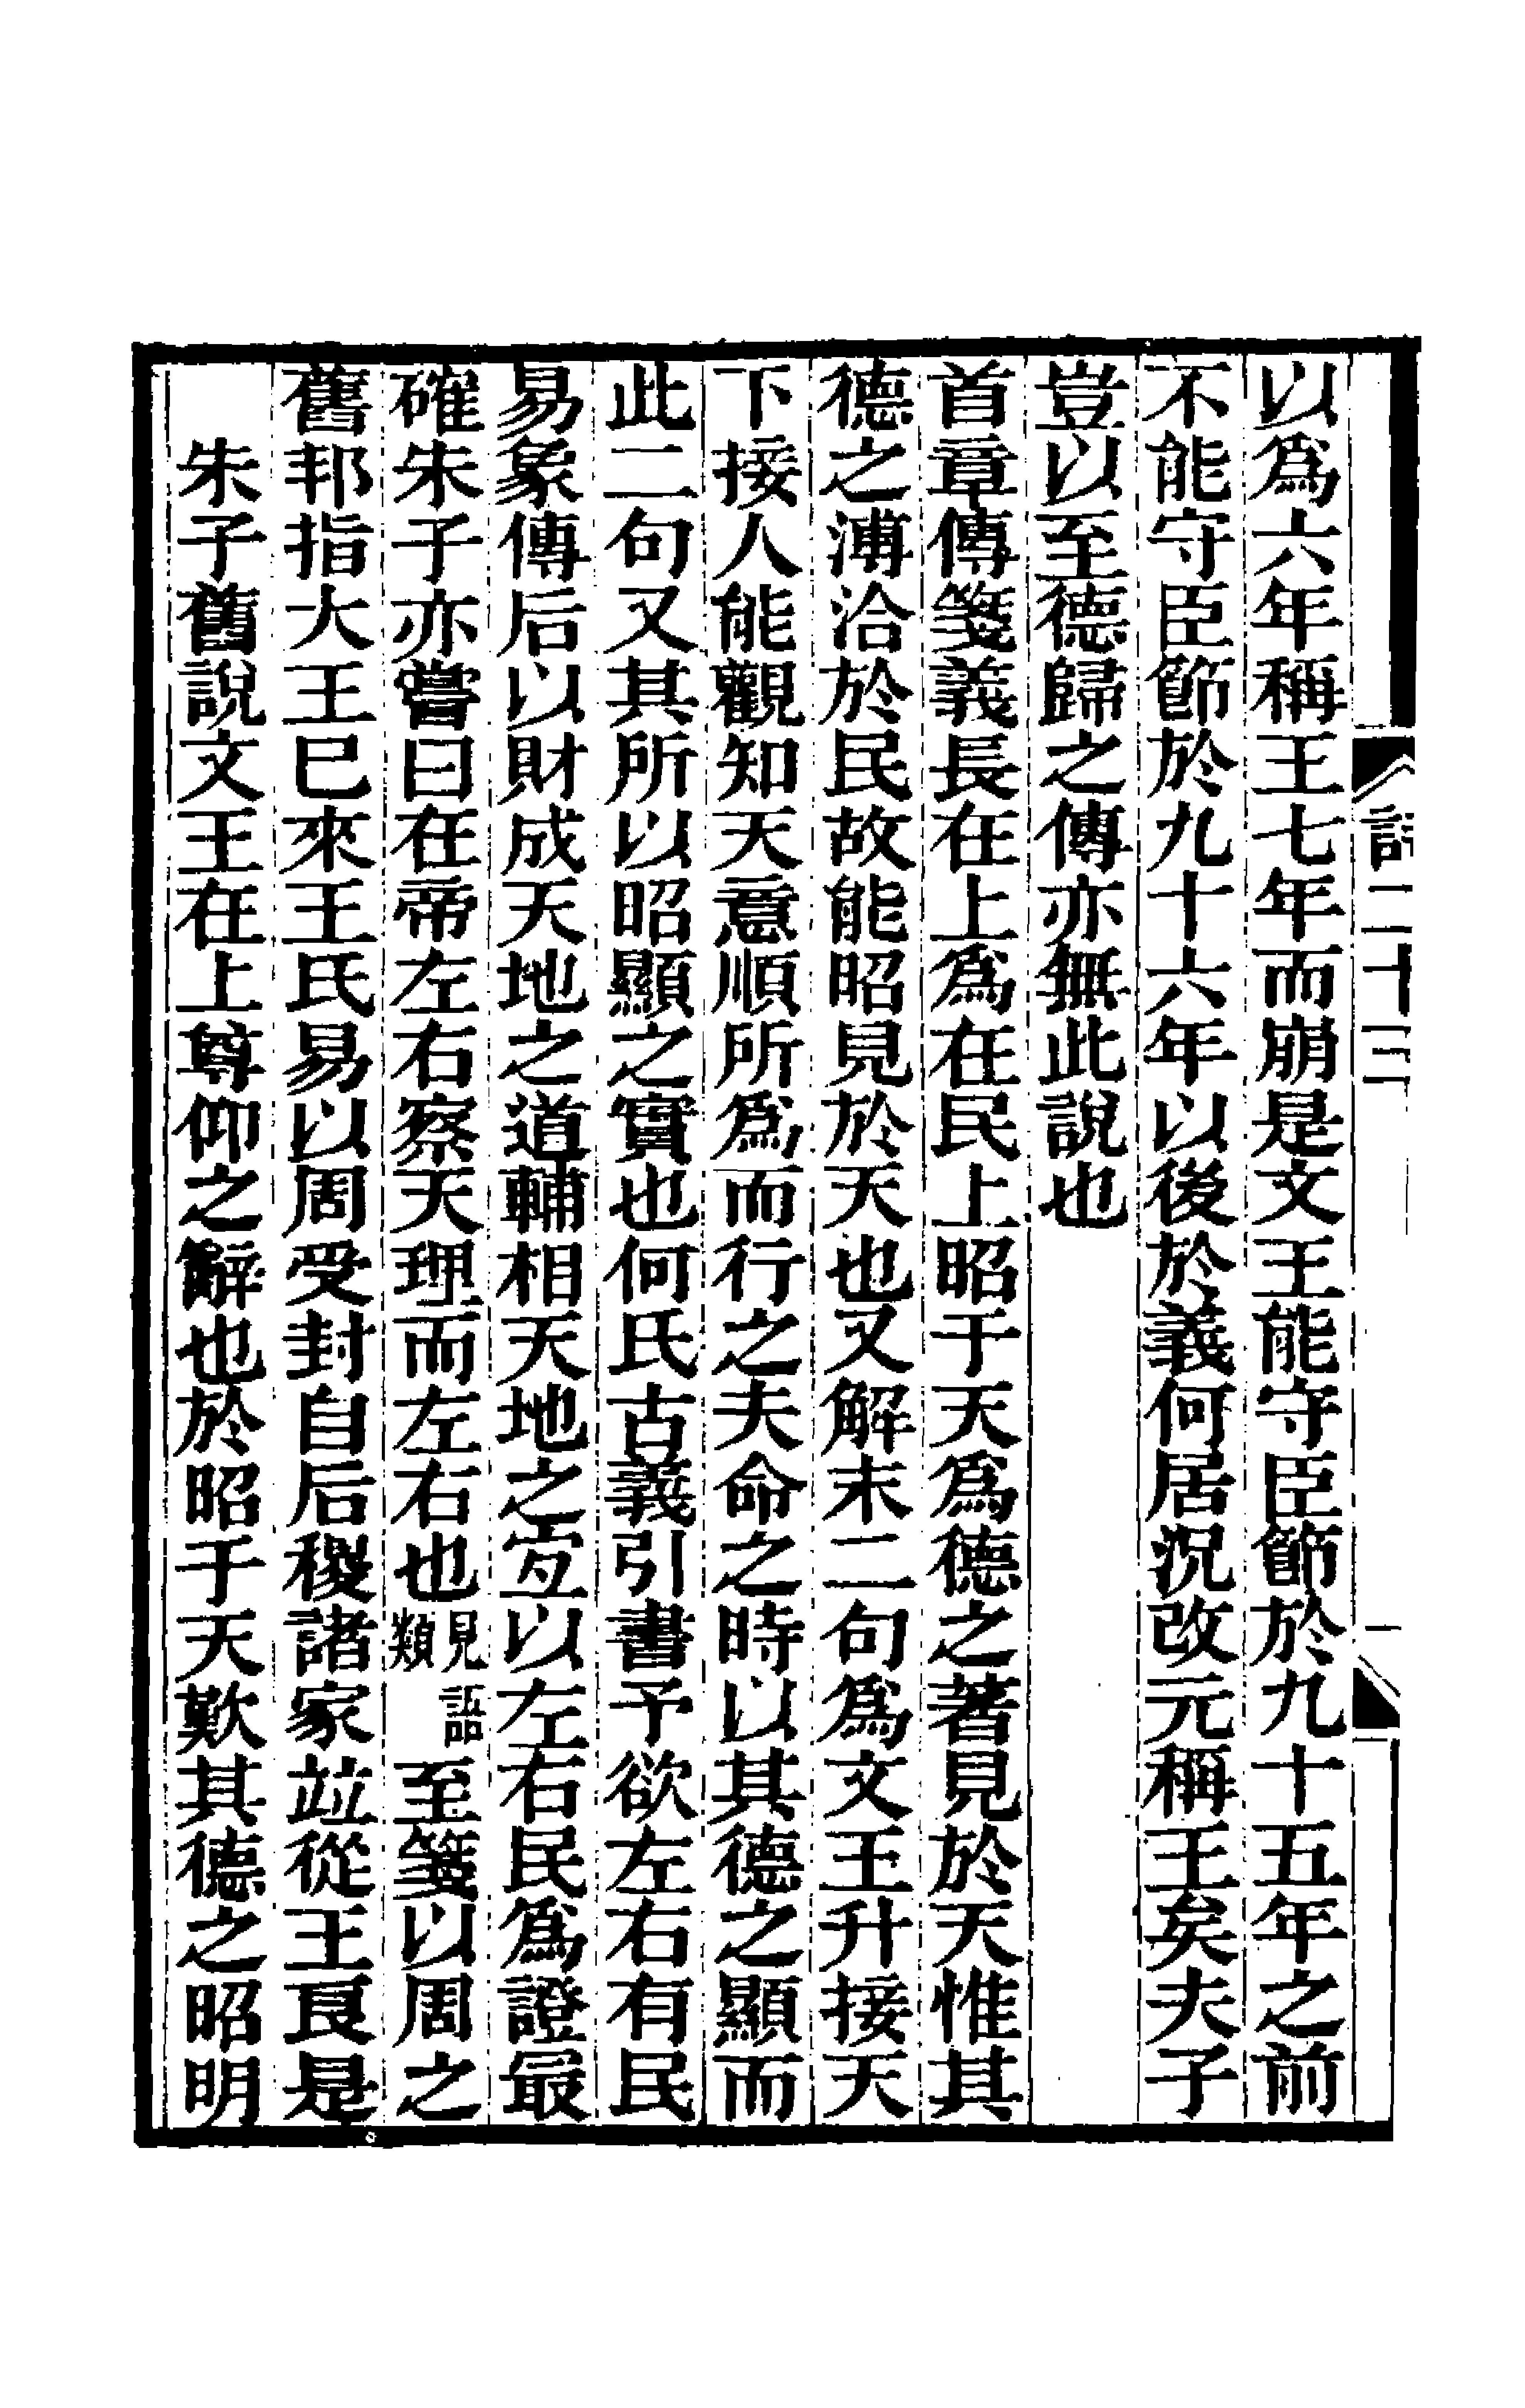 詩二十三
一
以爲六年稱王七年而崩是文王能守臣節於九十五年之前
不能守臣節於九十六年以後於義何居況改元稱王矣夫子
豈以至德歸之傳亦無此說也
首章傳箋義長在上爲在民上昭于天爲德之著見於天惟其
德之溥洽於民故能昭見於天也又解末二句爲文王升接天
下接人能觀知天意順所爲而行之夫命之時以其德之顯而
此二句又其所以昭顯之實也何氏古義引書予欲左右有民
易象傳后以財成天地之道輔相天地之宐以左右民爲證最
確朱子亦嘗曰在帝左右察天理而左右也見語類至箋以周之
舊邦指大王巳來王氏易以周受封自后稷諸家竝從王良是
朱子舊說文王在上尊仰之辭也於昭于天歎其德之昭明